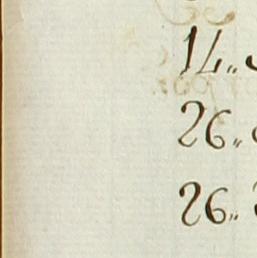 14„
26„
26„